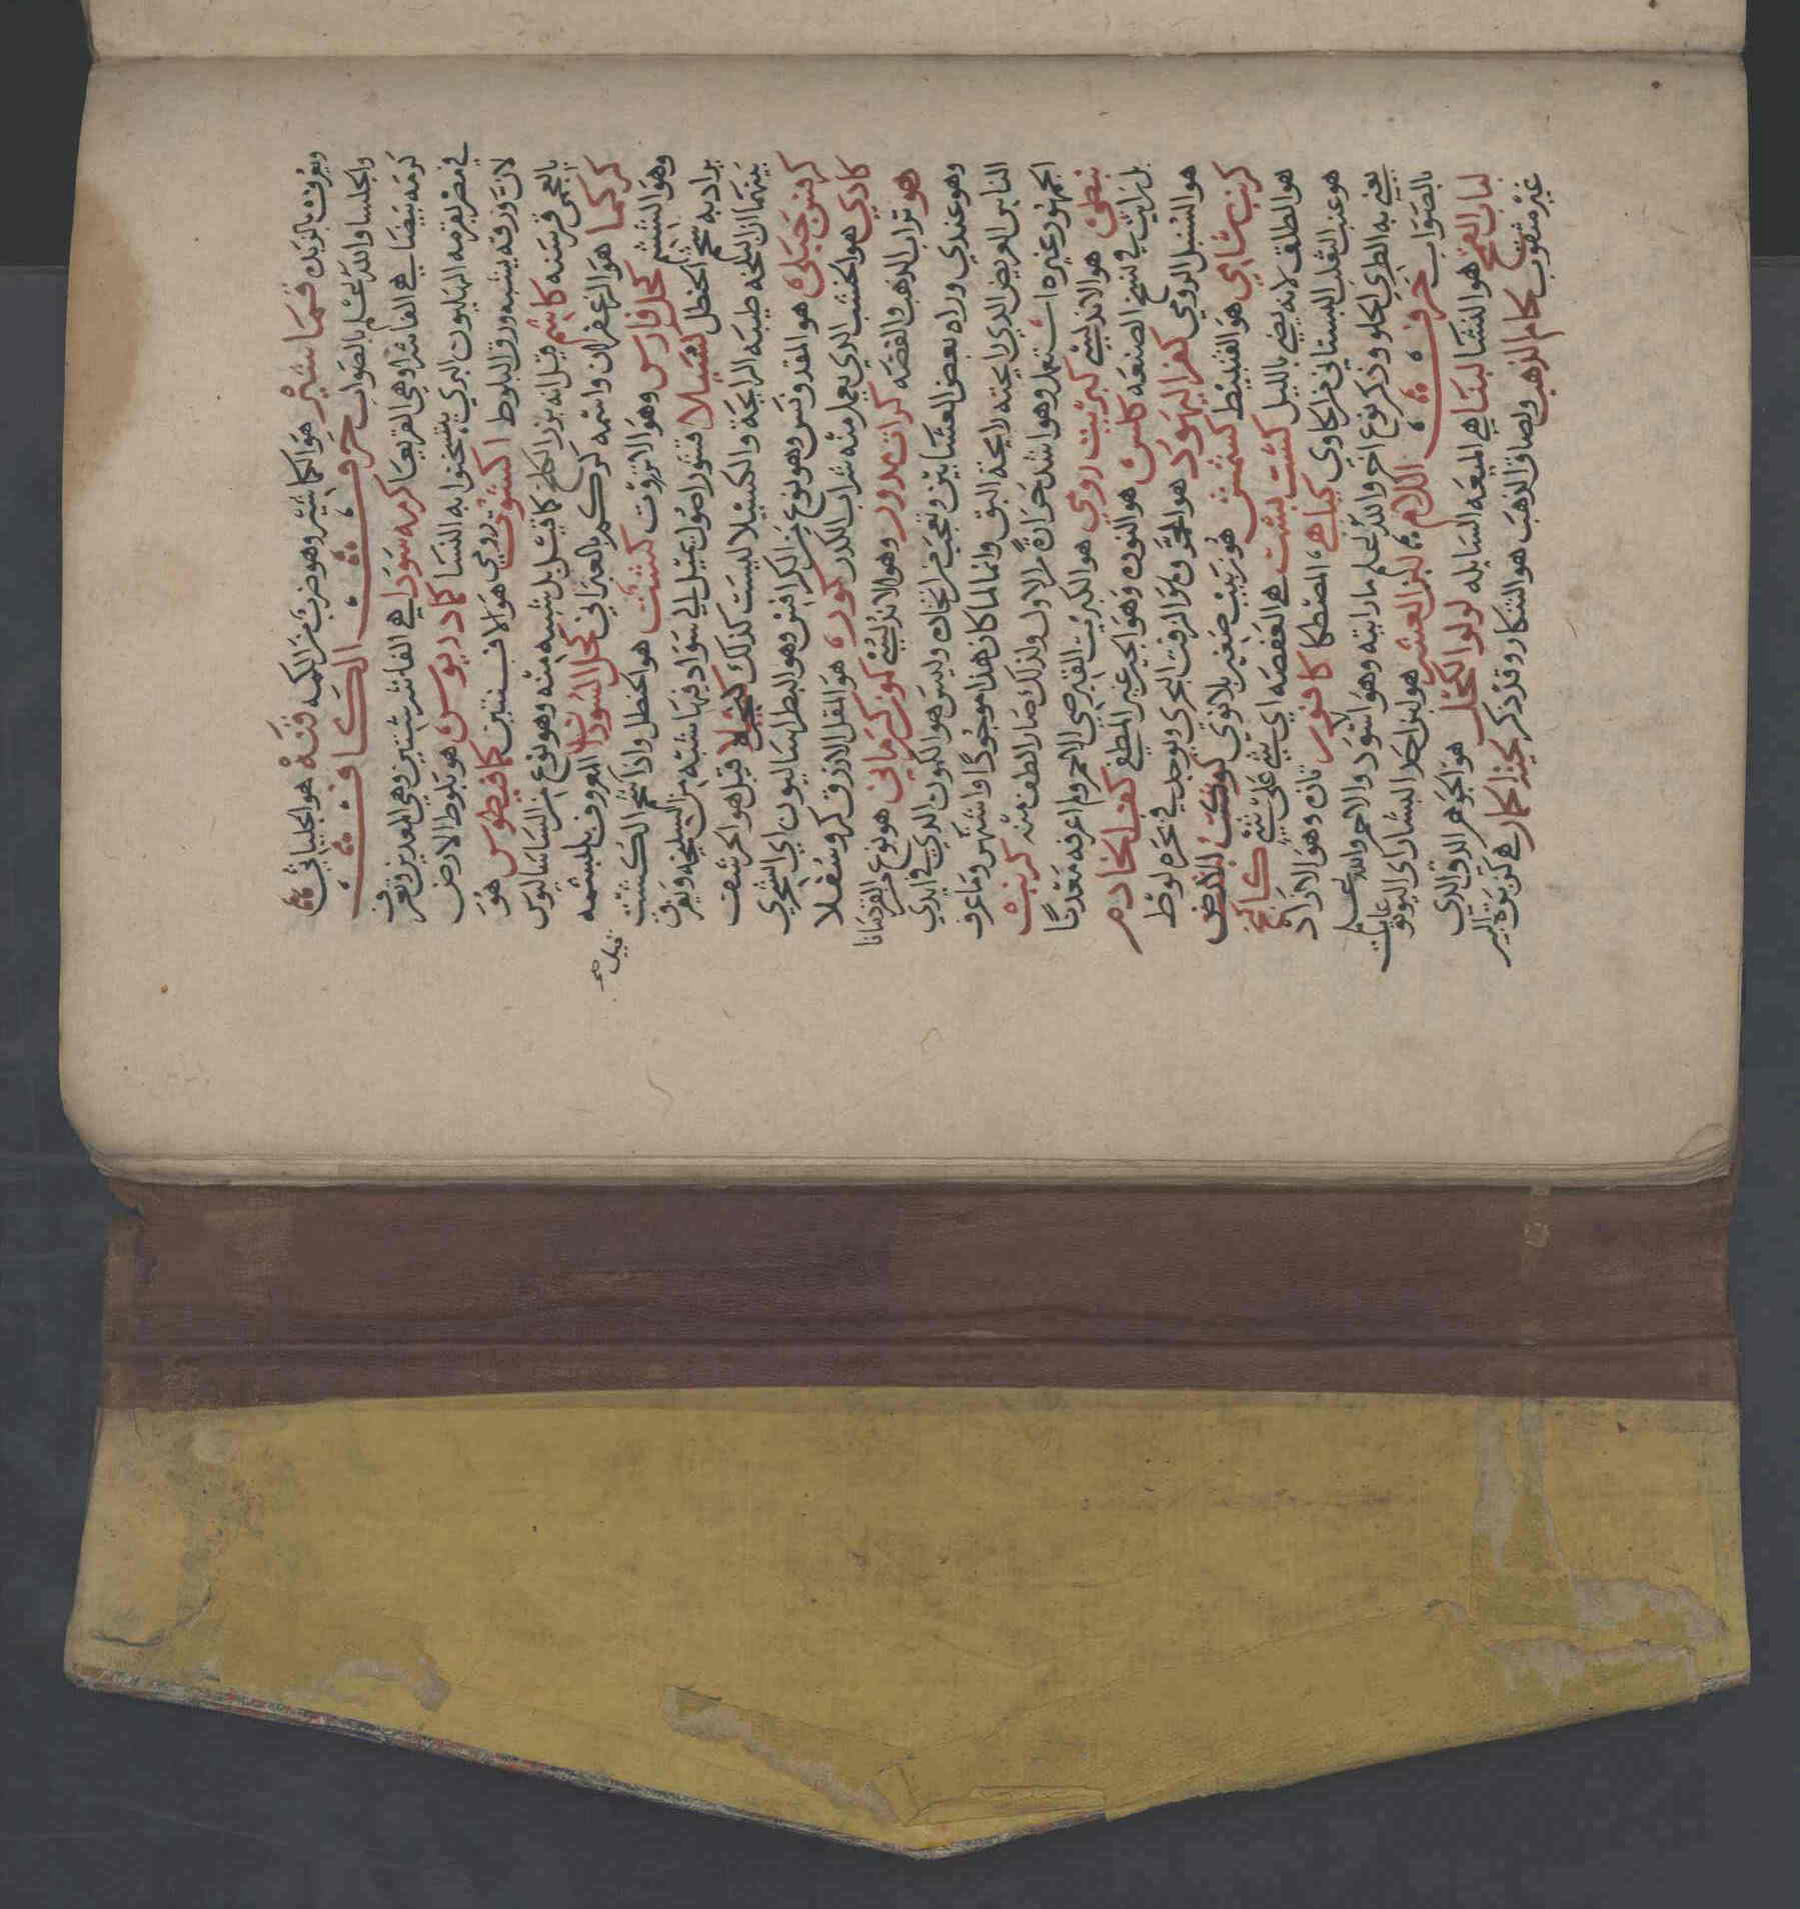 ويعرف بالزبد قماشير هو الكماشير وهو ضرب من الكمه قنه هو الجلبانى
والحلسا والله اعلم بالصواب حرف الكاف
كرمه بيضا هي الفاشرا وهي القريعا كرمه سودا هي الفاشرشتين وهي المعدين وتعرف
في مصر بقرمه الهليون البري يتبخروا به النسا كمادريوس هو بلوط الارض
لان ورقه يشبه ورق البلوط اكشوت رومي هو الافسنتين كمافيطوس هو
بالعجمي قرسنه كاشم قيل انه بزر الكلخ كما قيل بل شبيه منه وهو نوع من الساساليوس
كركما هو الزعفران واسمه كركم بالعبراني كحل السودان المعروف بلبشمه
وهو الششم كحل فارس وهو الانزروت كشت هو الحنظل واذا شحم الكشت
يراد به شحم الحنظل كسيلا قشور اصول يميل الي سواد فيها شبه من السليخه ويفرق
بينهما ان السليخه طيبه الرايحة والكسيلا ليست كذلك قيل هو الحرشف
كرفس جبلي هو المقدونس وهو نوع من الكرافس وهو البطراساليون اي الشجري
كادي هو الخشب الدي يعمل منه شراب الكدر كور هو المقل الازرق كروسفلا
هو تراب الدهب والفضه كرات مدور وهو الاندلسي كمون كرماني هو نوع من القردمانا
وهو عندي وراه بعض العشابين وتعجب من اتخاده وليس هو الكمون الدي في ايدي
الناس العريض الدي رايحته رايحة البق وانما لما كان هذا موجودا واشتهر وما عرف
الجمهور غيره استعملو وهو اشد حرارة من الاول ولذلك صار الطف منه كرنب
نبطي هو الاندلسي كبريت رومي هو الكبريت القبرصي الاحمر ولم اعرفه معدنا
بل رايت في نسخ الصنعه كلس هو النوره وهو الجير غير المطفي كف الخادم
هو السنبل الرومي كفر اليهود هو الحمر وهو الزفت البحري ويوجد في بحرة لوط
كرنب شامي هو القنبيط كشمش هو زبيب صغير بلا نوي كوكب الارض
هو الطلق لانه يضي بالليل كشت بركشت هي العفصه اي شي علي شي كاكنج
هو عنب الثعلب البستاني من الحاوي كيا هي المصطكا كافور تان وهو الازاد
يعني به الطري الحلو وذكر نوع اخر والله اعلم ما رايته وهو اسود والاحمر والله اعلم
بالصواب حرف اللام لبن العشر هو لبن احد البشاراي اليوتوعات
لباب القمح هو النشا لبنا هي الميعه السايله لولوا النحل هو الجوهر الدق الدي
غير مثقوب لحام الذهب ولصاق الذهب هو التنكار وقد ذكر لحية الحمار هي كزبرة البير